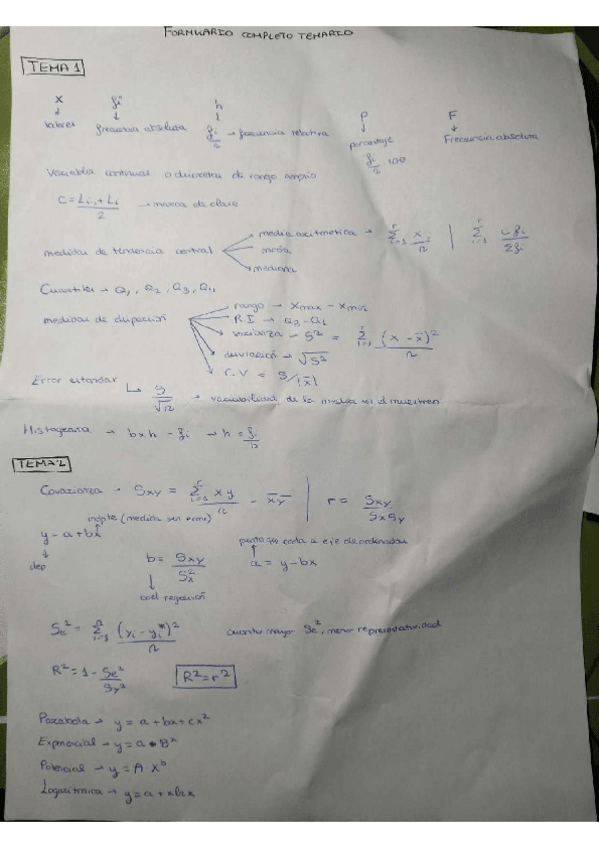 FORMULARIO COMPLETO TEMARIO
TEMA 1
x fi h P F
↓ ↓ ↓ ↓ ↓
valores frecuencia absoluta fi/n → frecuencia relativa porcentaje Frecuencia absoluta
fi/n · 100
Variables continuas o discretas de rango amplio
C = Li-1 + Li / 2 → marca de clase
medidas de tendencia central
media aritmetica → Σ i=1 xi/n | Σ i=1 c fi / Σfi
moda
mediana
Cuartiles → Q1, Q2, Q3, Q4
medidas de dispersión
rango → xmax - xmin
R.I → Q3 - Q1
varianza → S² = Σ i=1 (x - x̄)² / n
desviación → √S²
C.V = S/|x̄|
Error estandar
↳ S/√n → variabilidad de la
Histograma → b×h = fi → h = fi/b
TEMA 2
Covarianza → Sxy = Σ i=1 xy / n - x̄ȳ | r = Sxy / SxSy
indpte (medida sin error)
y = a + bx
↓
dep
b = Sxy / Sx²
↓
coef regresión
punto que corta a eje de ordenadas
↑
a = y - bx
Se² = Σ i=1 (yi - yi*)² / n cuanto mayor Se², menor representatividad
R² = 1 - Se² / Sy² R² = r²
Parabola → y = a + bx + cx²
Exponencial → y = a · B^x
Potencial → y = A x^b
Logaritmica → y = a +